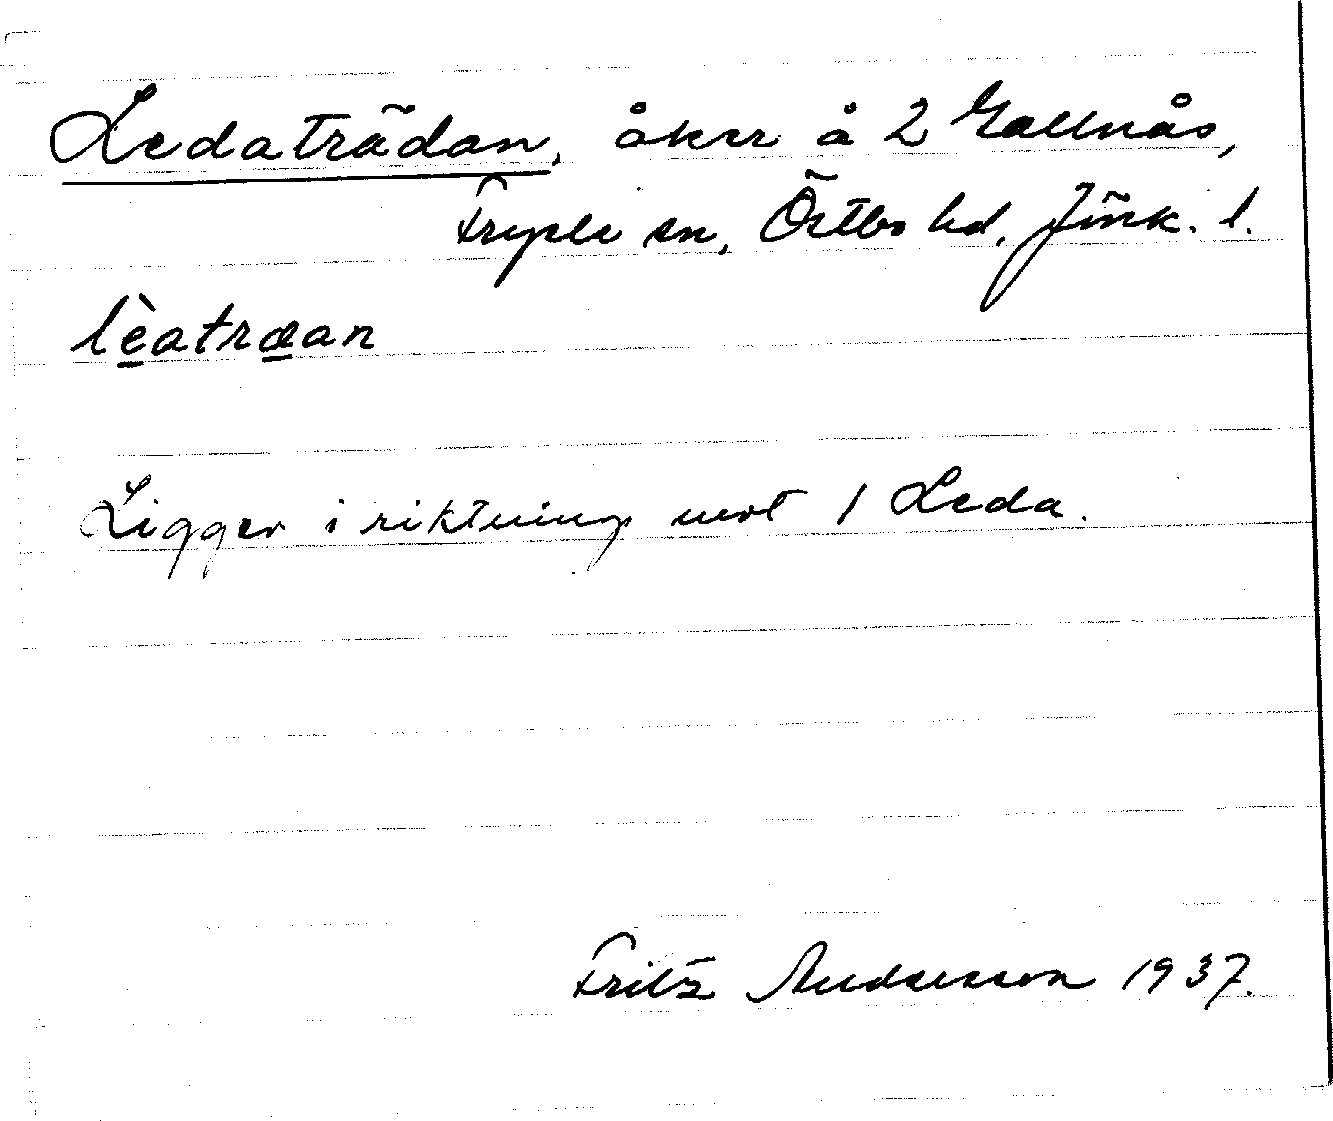 Ledaträdan, åker å 2 Gallnås,
Fryele sn, Östbo hd, Jönk. l.
lèatræan
Ligger i riktning mot 1 Leda.
Fritz Andersson 1937.